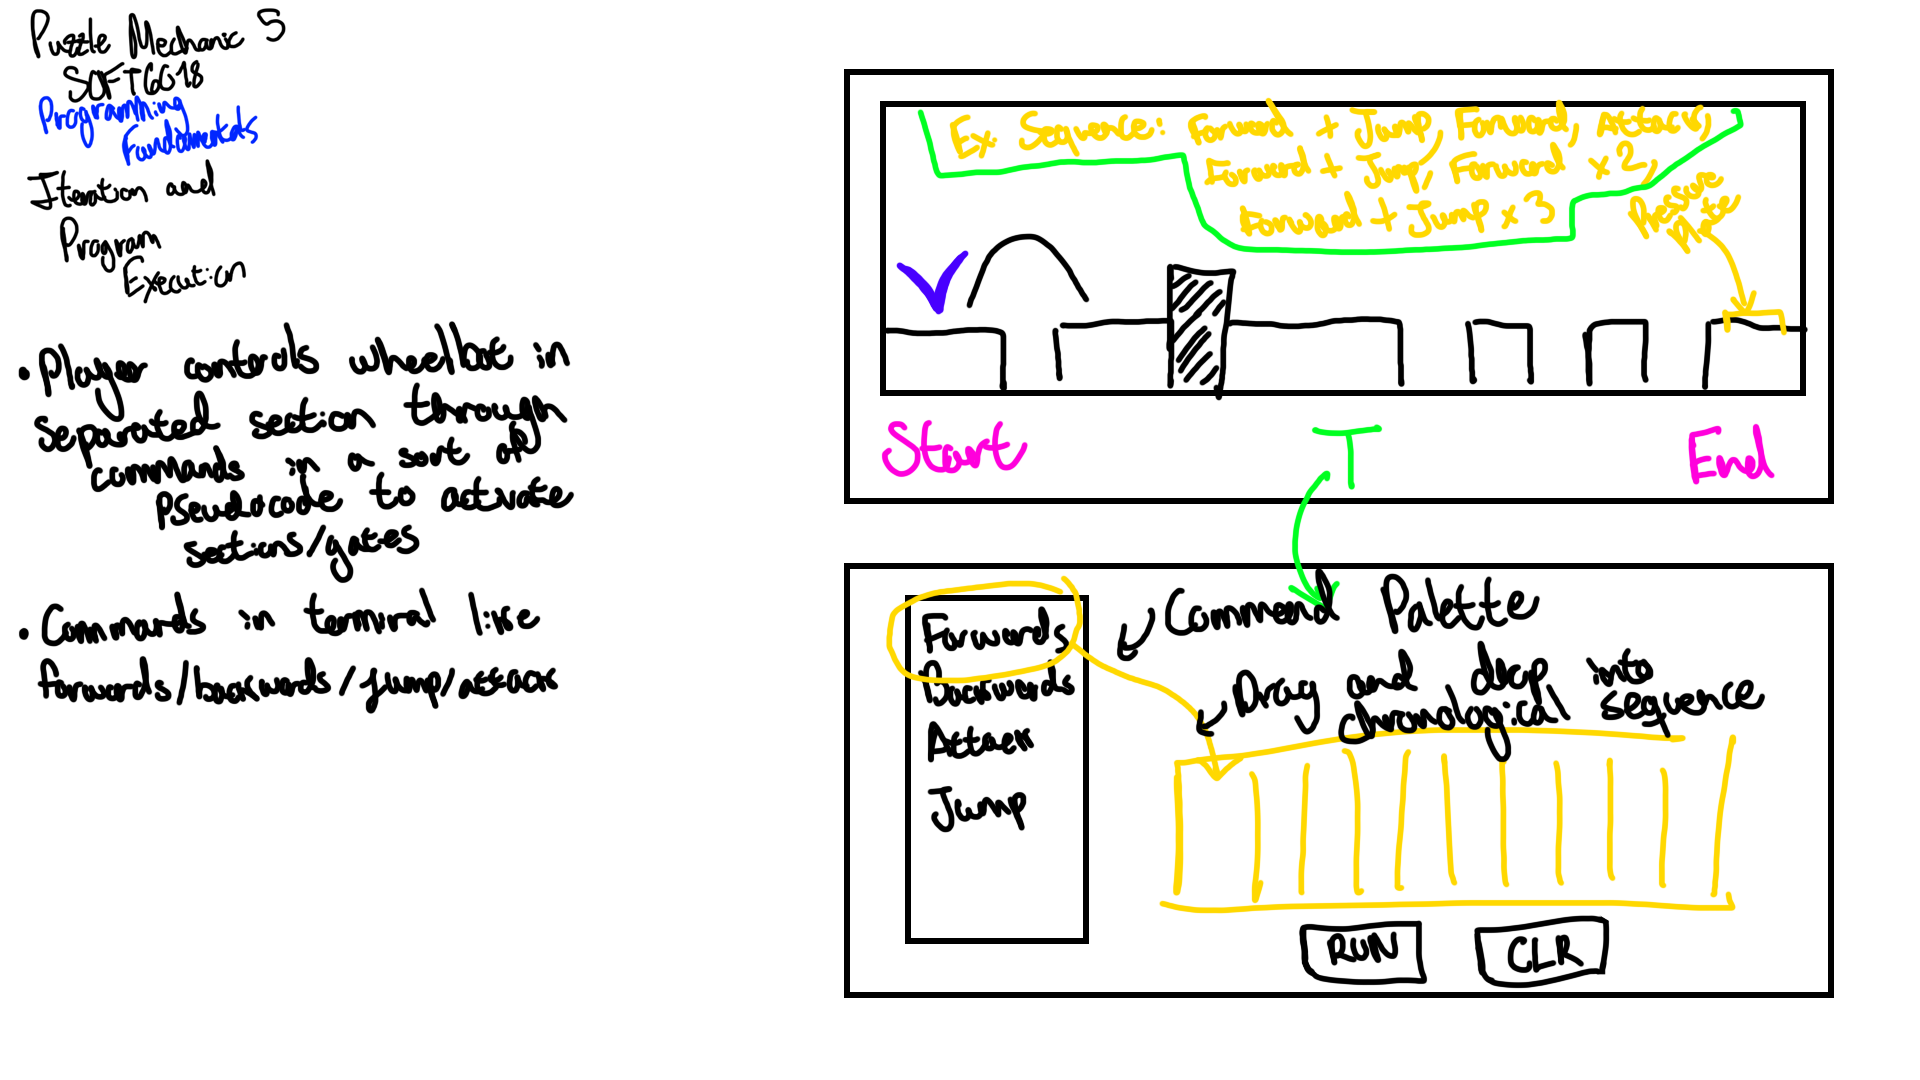 Puzzle Mechanic 5
SOFT6018
Programming
Fundamentals
Iteration and
Program
Execution
• Player controls wheelbot in
separated section through
commands in a sort of
pseudocode to activate
sections/gates
• Commands in terminal like
forwards/backwards/jump/attack
Ex. Sequence: Forward + Jump, Forward, Attack,
Forward + Jump, Forward x 2,
Forward + Jump x 3
Pressure
Plate
Start
T
End
Forwards
Backwards
Attack
Jump
Command Palette
Drag and drop into
chronological sequence
RUN
CLR